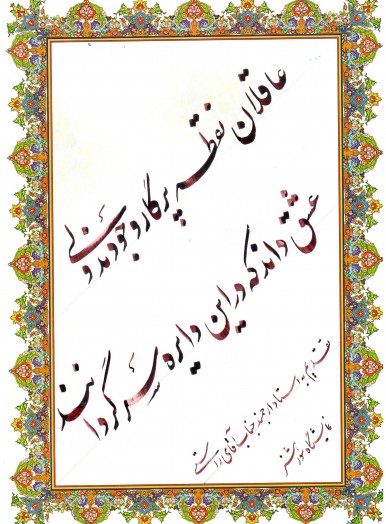 عاقلان نقطه پرگار وجودند ولی
عشق داند که در این دایره سرگردانند
تقدیم به استاد ارجمند جناب آقای آراستی
نمایشگاه شوشتر